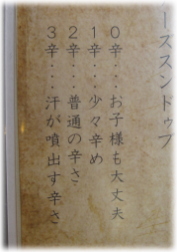 ーズスンドゥブ
0辛・・・お子様も大丈夫
1辛・・・少々辛め
2辛・・・普通の辛さ
3辛・・・汗が噴出す辛さ